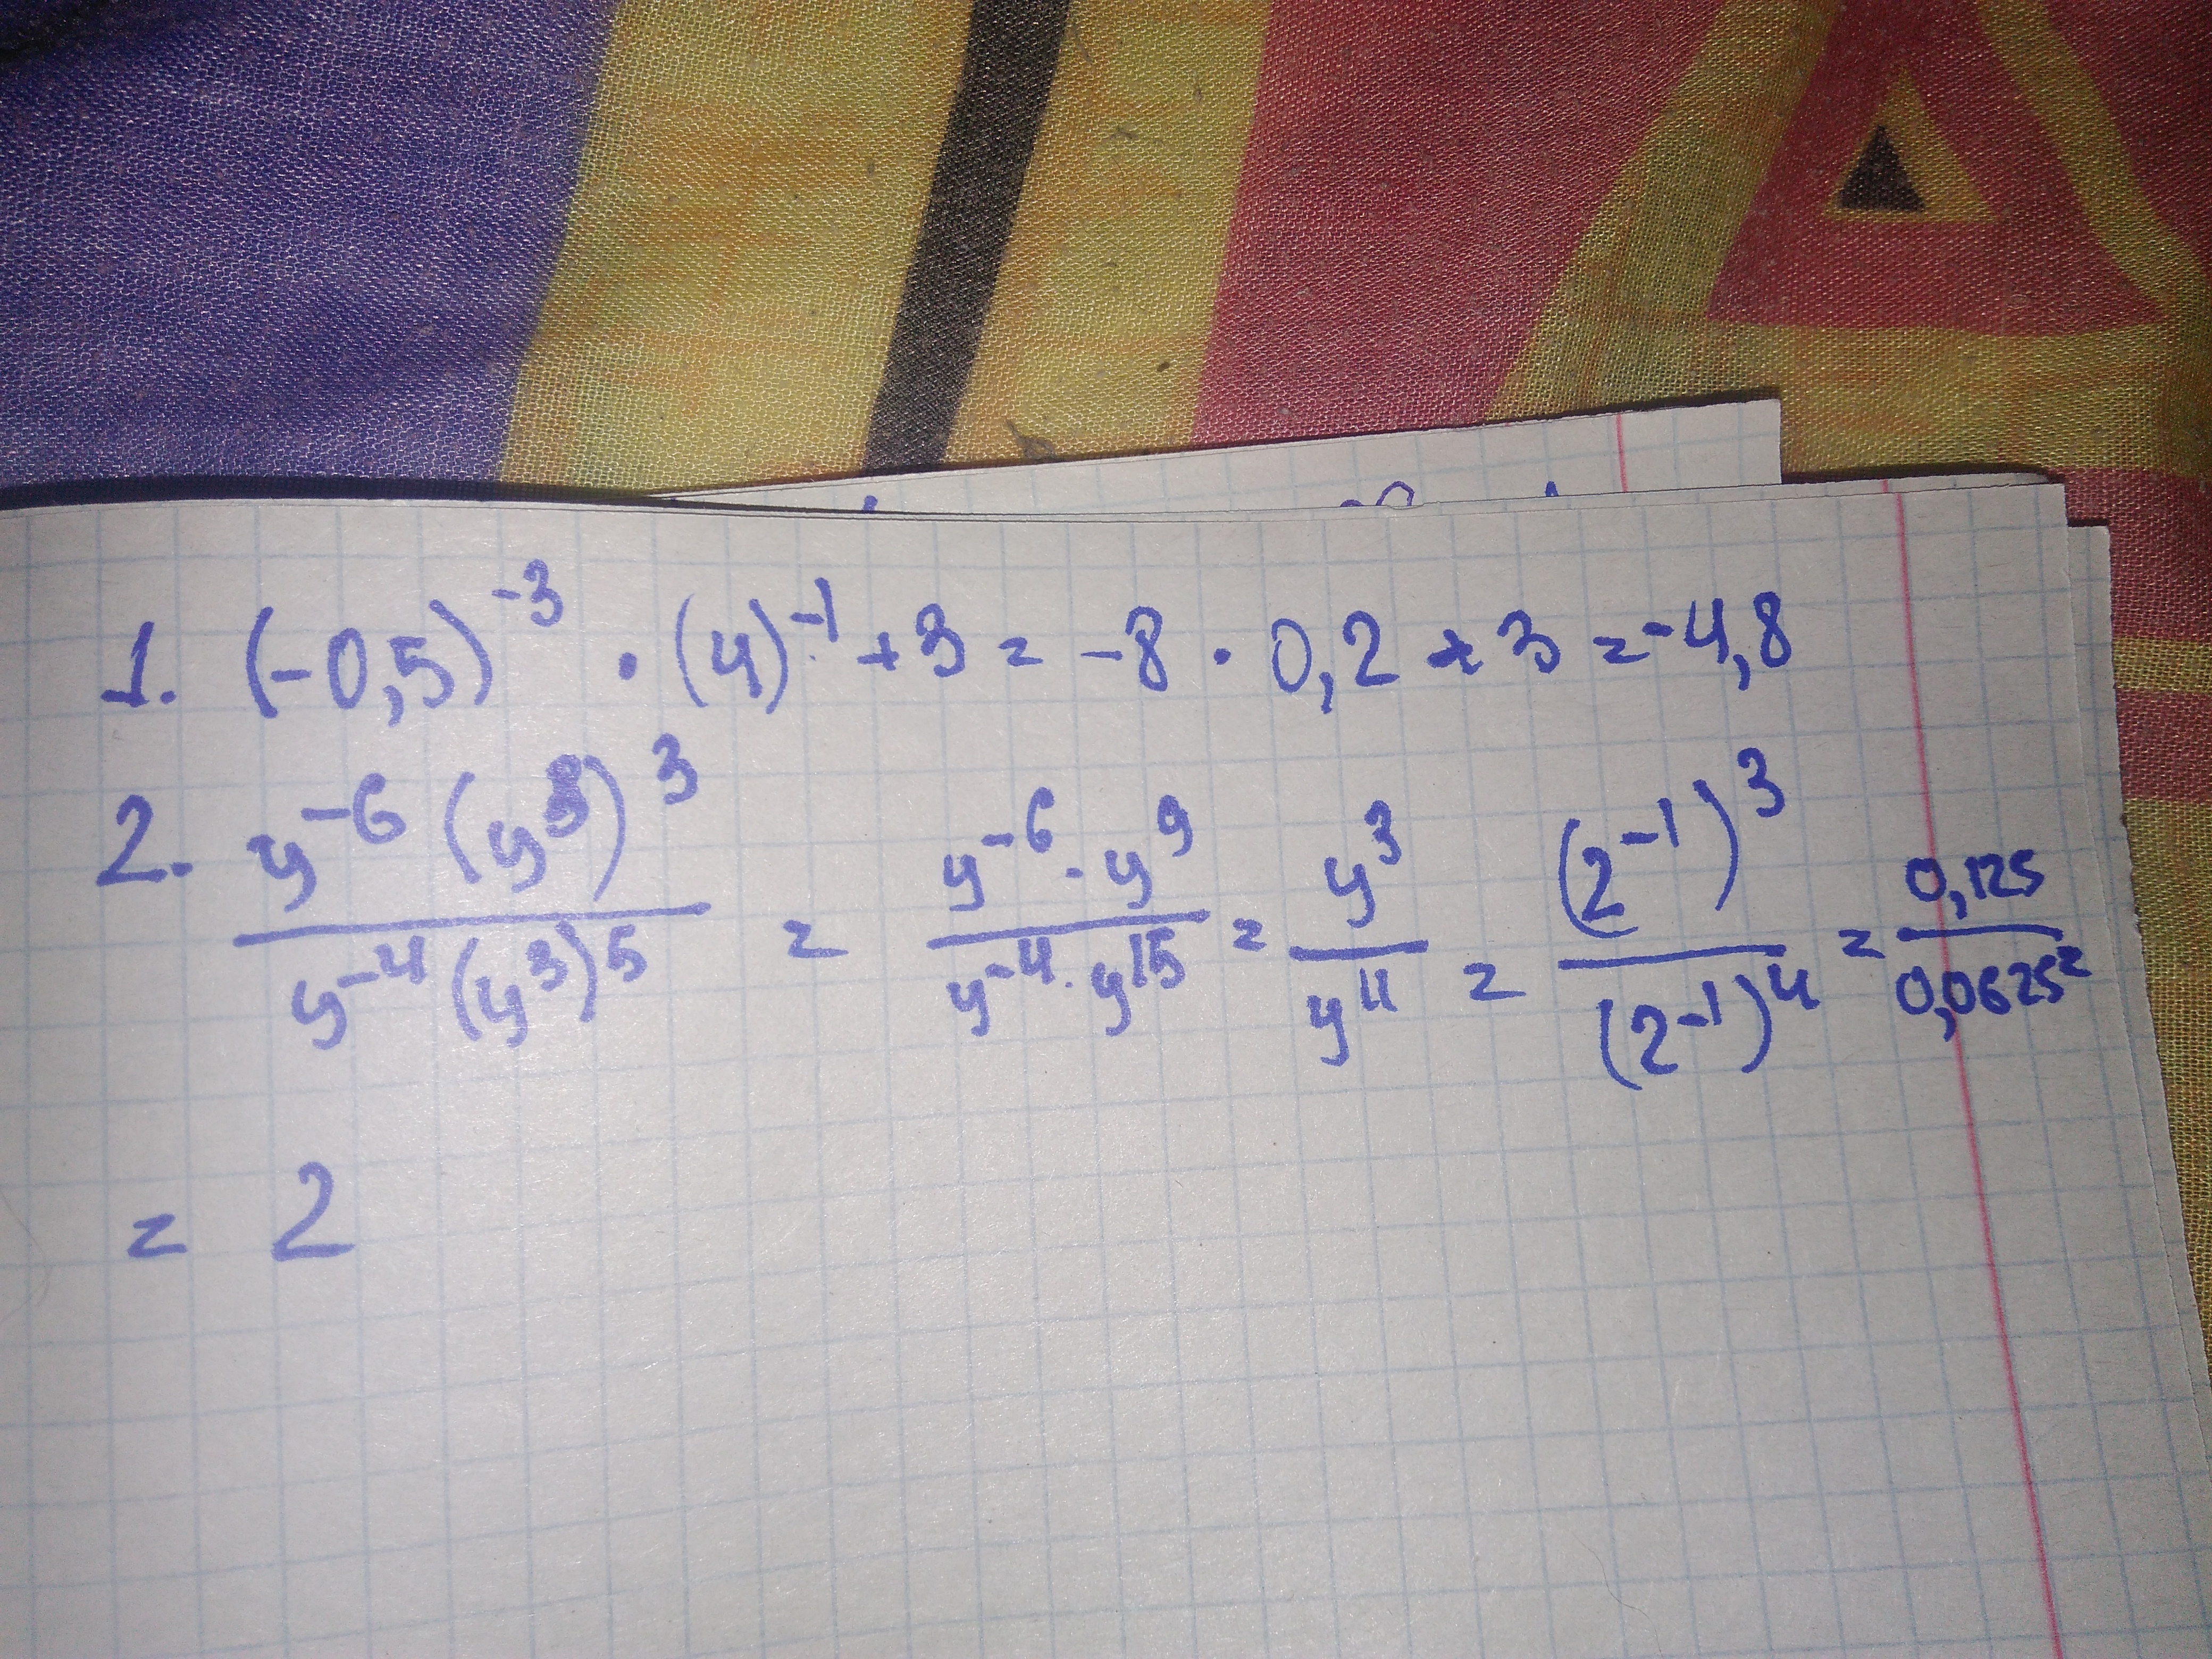 1. (-0,5)^-3 · (4)^-1 + 3 = -8 · 0,2 + 3 = -4,8
2. y^-6 (y^3)^3 / y^-4 (y^3)^5 = y^-6 · y^9 / y^-4 · y^15 = y^3 / y^11 = (2^-1)^3 / (2^-1)^4 = 0,125 / 0,0625 =
= 2